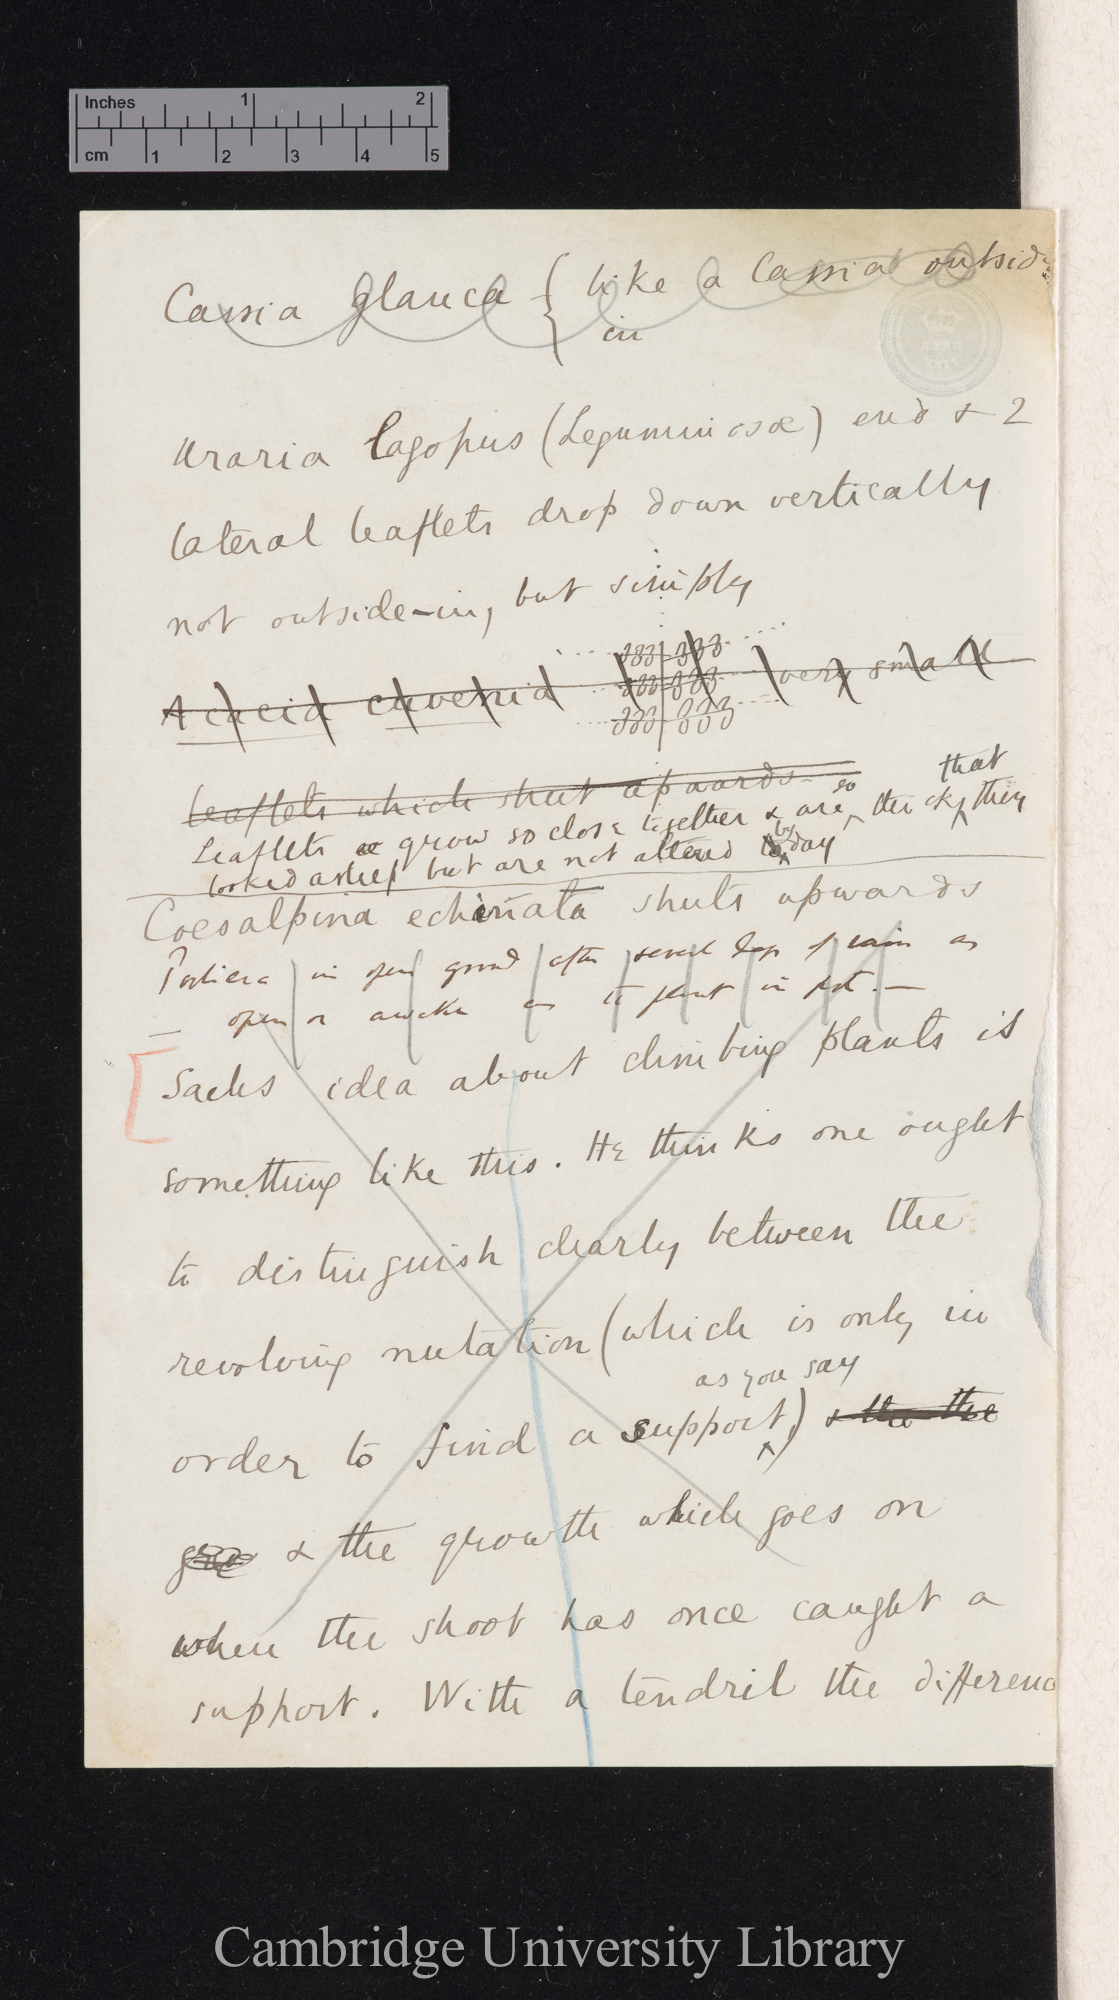 Inches 1 2
cm 1 2 3 4 5
Cassia glauca { like a Cassia outside
in
Uraria lagopus (Leguminosæ) end & 2
lateral leaflets drop down vertically
not outside-in, but simply
Acacia cavenia very small
leaflets which shut upwards
so that
Leaflets grow so close together & are thick, they
by
looked asleep but are not altered day
Coesalpina echinata shuts upwards
Porliera in open ground after several days of rain as
— open or awake as is plant in pot.—
Sachs idea about climbing plants is
something like this. He thinks one ought
to distinguish clearly between the
revolving nutation (which is only in
as you say
order to find a support) & the the
& the growth which goes on
when the shoot has once caught a
support. With a tendril the difference
Cambridge University Library